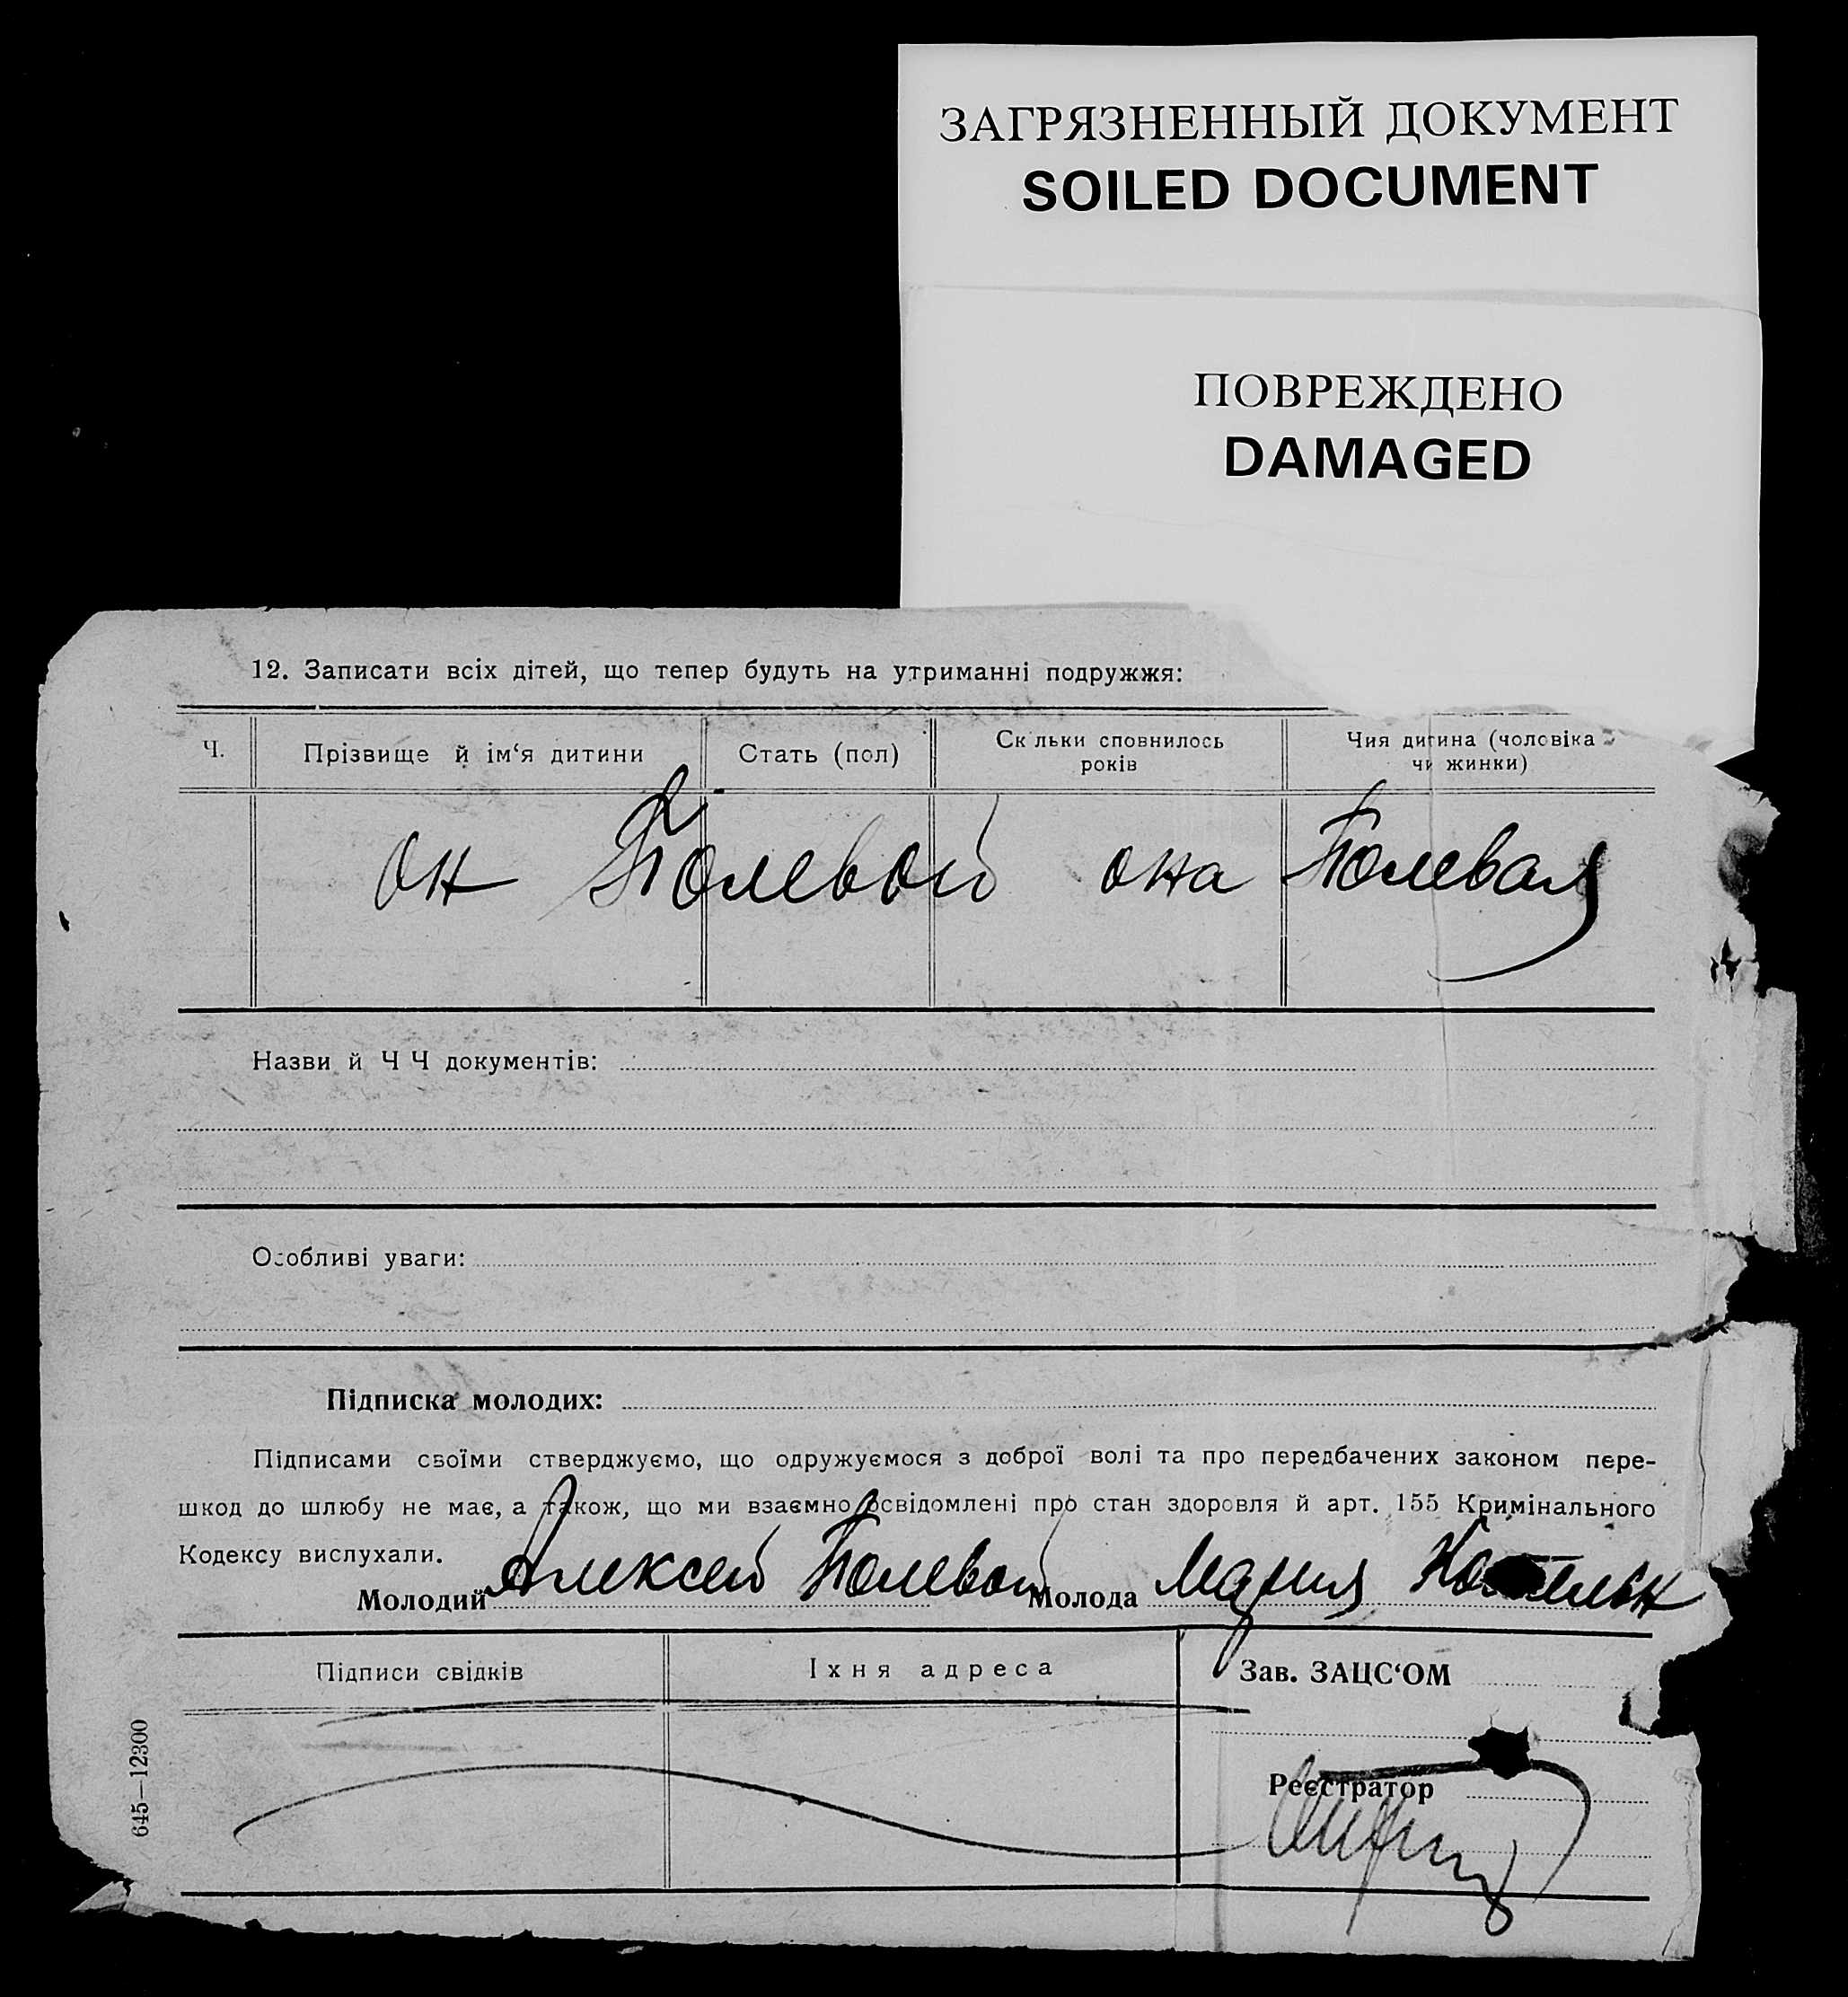 ЗАГРЯЗНЕННЫЙ ДОКУМЕНТ
SOILED DOCUMENT
ПОВРЕЖДЕНО
DAMAGED
12. Записати всіх дітей, що тепер будуть на утриманні подружжя:
Ч. Прізвище й ім‘я дитини Стать (пол) Ск льки сповнилось років Чия дитина (чоловіка чи жинки)
он Полевой она Полевая
Назви й Ч Ч документів:
Особливі уваги:
Підписка молодих:
Підписами своїми стверджуємо, що одружуємося з доброї волі та про передбачених законом пере-
шкод до шлюбу не має, а також, що ми взаємно освідомлені про стан здоровля й арт. 155 Кримінального
Кодексу вислухали.
Молодий Алексей Полевой Молода Мария
Підписи свідків Їхня адреса Зав. ЗАЦС‘ОМ
Реєстратор
645—12300